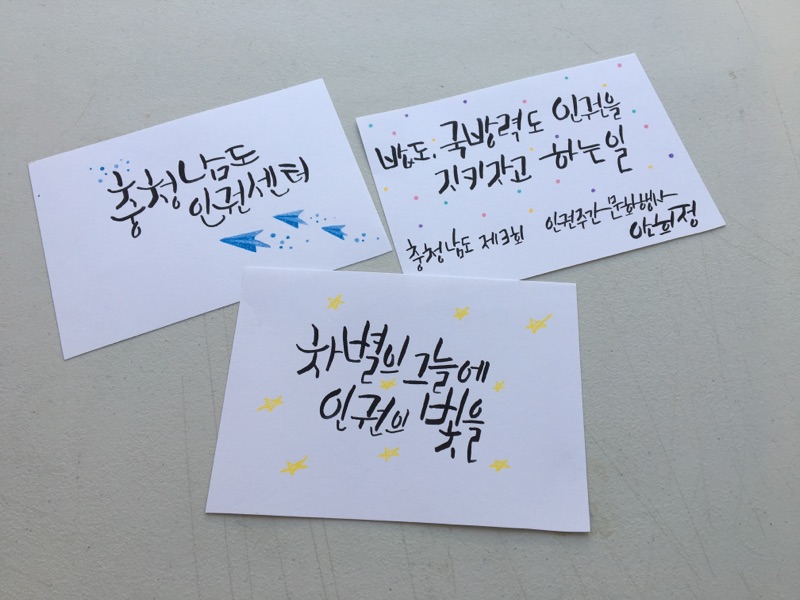 충청남도
인권센터
밥도, 국방력도 인권을
지키자고 하는일
충청남도 제3회 인권주간문화행사
안희정
차별의 그늘에
인권의 빛을